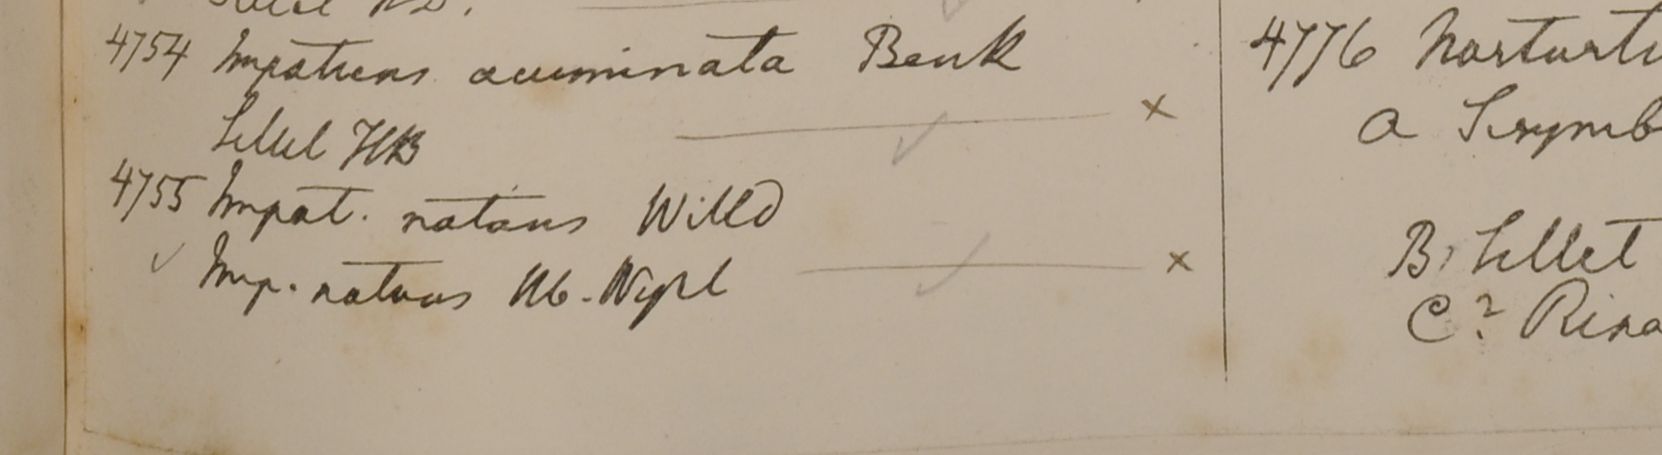 4754 Impatiens acuminata Benth
Sillet HB
4755 Impat. natans Willd
Imp. natans Hb. Wight
4776 Nasturti
a Sisymb
B. Sillet
C?